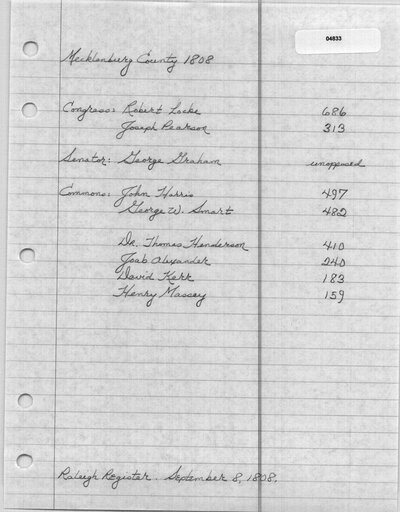 04833
Mecklenburg County 1808
Congress: Robert Locke 686
Joseph Pearson 313
Senator: George Graham unopposed
Commons: John Harris 497
George W. Smart 482
Dr. Thomas Henderson 410
Joab Alexander 240
David Kerr 183
Henry Massey 159
Raleigh Register. September 8, 1808.